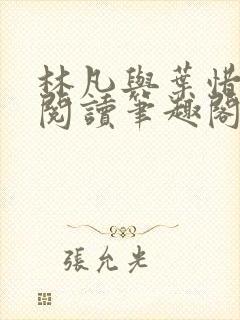 林凡與葉惜
閱讀筆趣閣
張允光